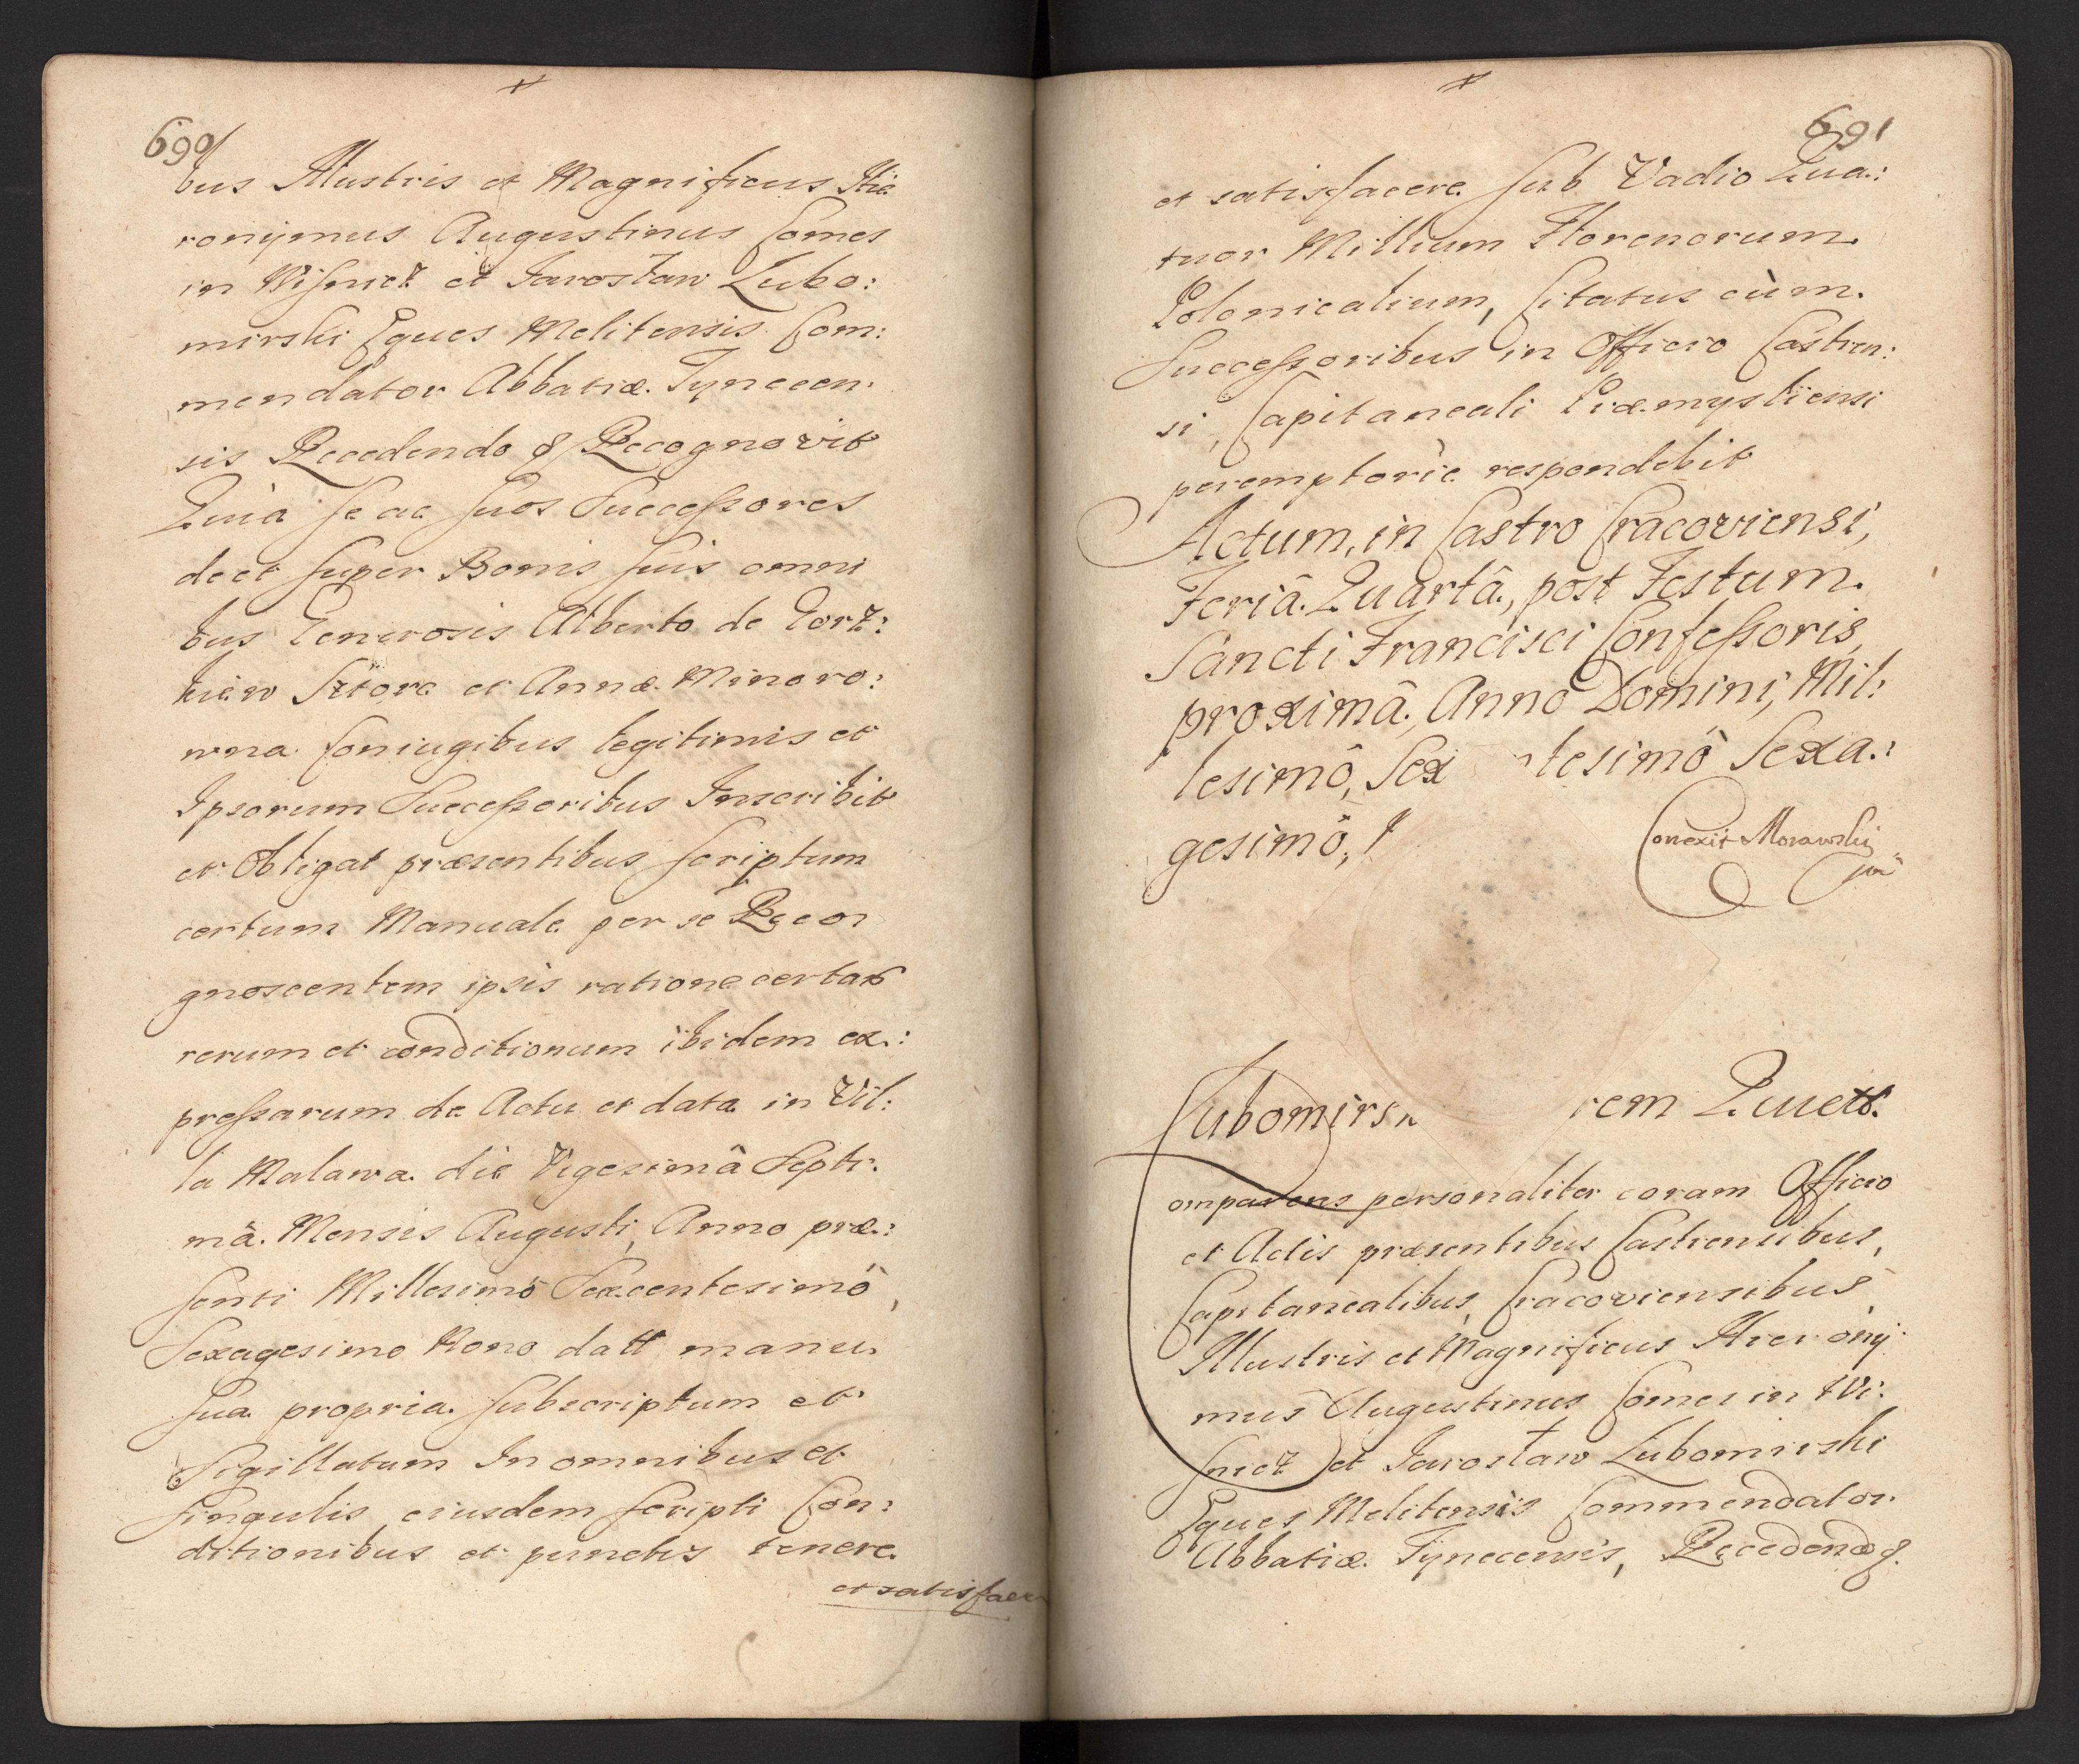 690
bus Illustris et Magnificus Hie
ronijmus Augustinus Comes
in Wisnicz et Jarosław Lubo:
mirski Eques Melitensis Com:
mendator Abbatiæ Tynecen:
sis Recedendo &c Recognovit
Quia se ac suos Successores
de et super Bonis suis omni
bus Generosis Alberto de Gorz:
kiew et Annæ Minoro:
wna Coniugibus legitimis et
Ipsorum Successoribus Inscribit
et Obligat præsentibus scriptum
certum Manuale per se Reco
gnoscentem ipsis ratione certar
rerum et conditionum ibidem ex:
pressarum de Actu et data in Vil:
la Malawa die Vigesimâ Septi:
mâ Mensis Augusti, Anno præ:
senti Millesimô Sexcentesimô,
Sexagesimo Nono datt manu
sua propria subscriptum et
Sigillatum In omnibus et
singulis eiusdem scripti Con:
ditionibus et punctis tenere
et satisfacer
691
et satisfacere sub Vadio Qua:
tuor Millium Florenorum
Polonicalium, Citatus cùm
Successoribus in Officio Castren:
si, Capitaneali Præmysliensi
peremptoriè respondebit
Actum, in Castro Cracoviensi,
Feriâ Quartâ, post Festum
Sancti Francisci Confessoris,
proximâ, Annô Domini, Mil:
lesimô, Sex tesimô Sexa:
gesimô,
Conexit Morawski
Lubomirs rem Quiett.
omparens personaliter coram Officio
et Actis præsentibus Castrensibus,
Capitanealibus, Cracoviensibus
Illustris et Magnificus Hieronij
mus Augustinus Comes in Wi:
snicz et Jarosław Lubomirski
Eques Melitensis Commendator
Abbatiæ Tynecensis, Recedendo &c.